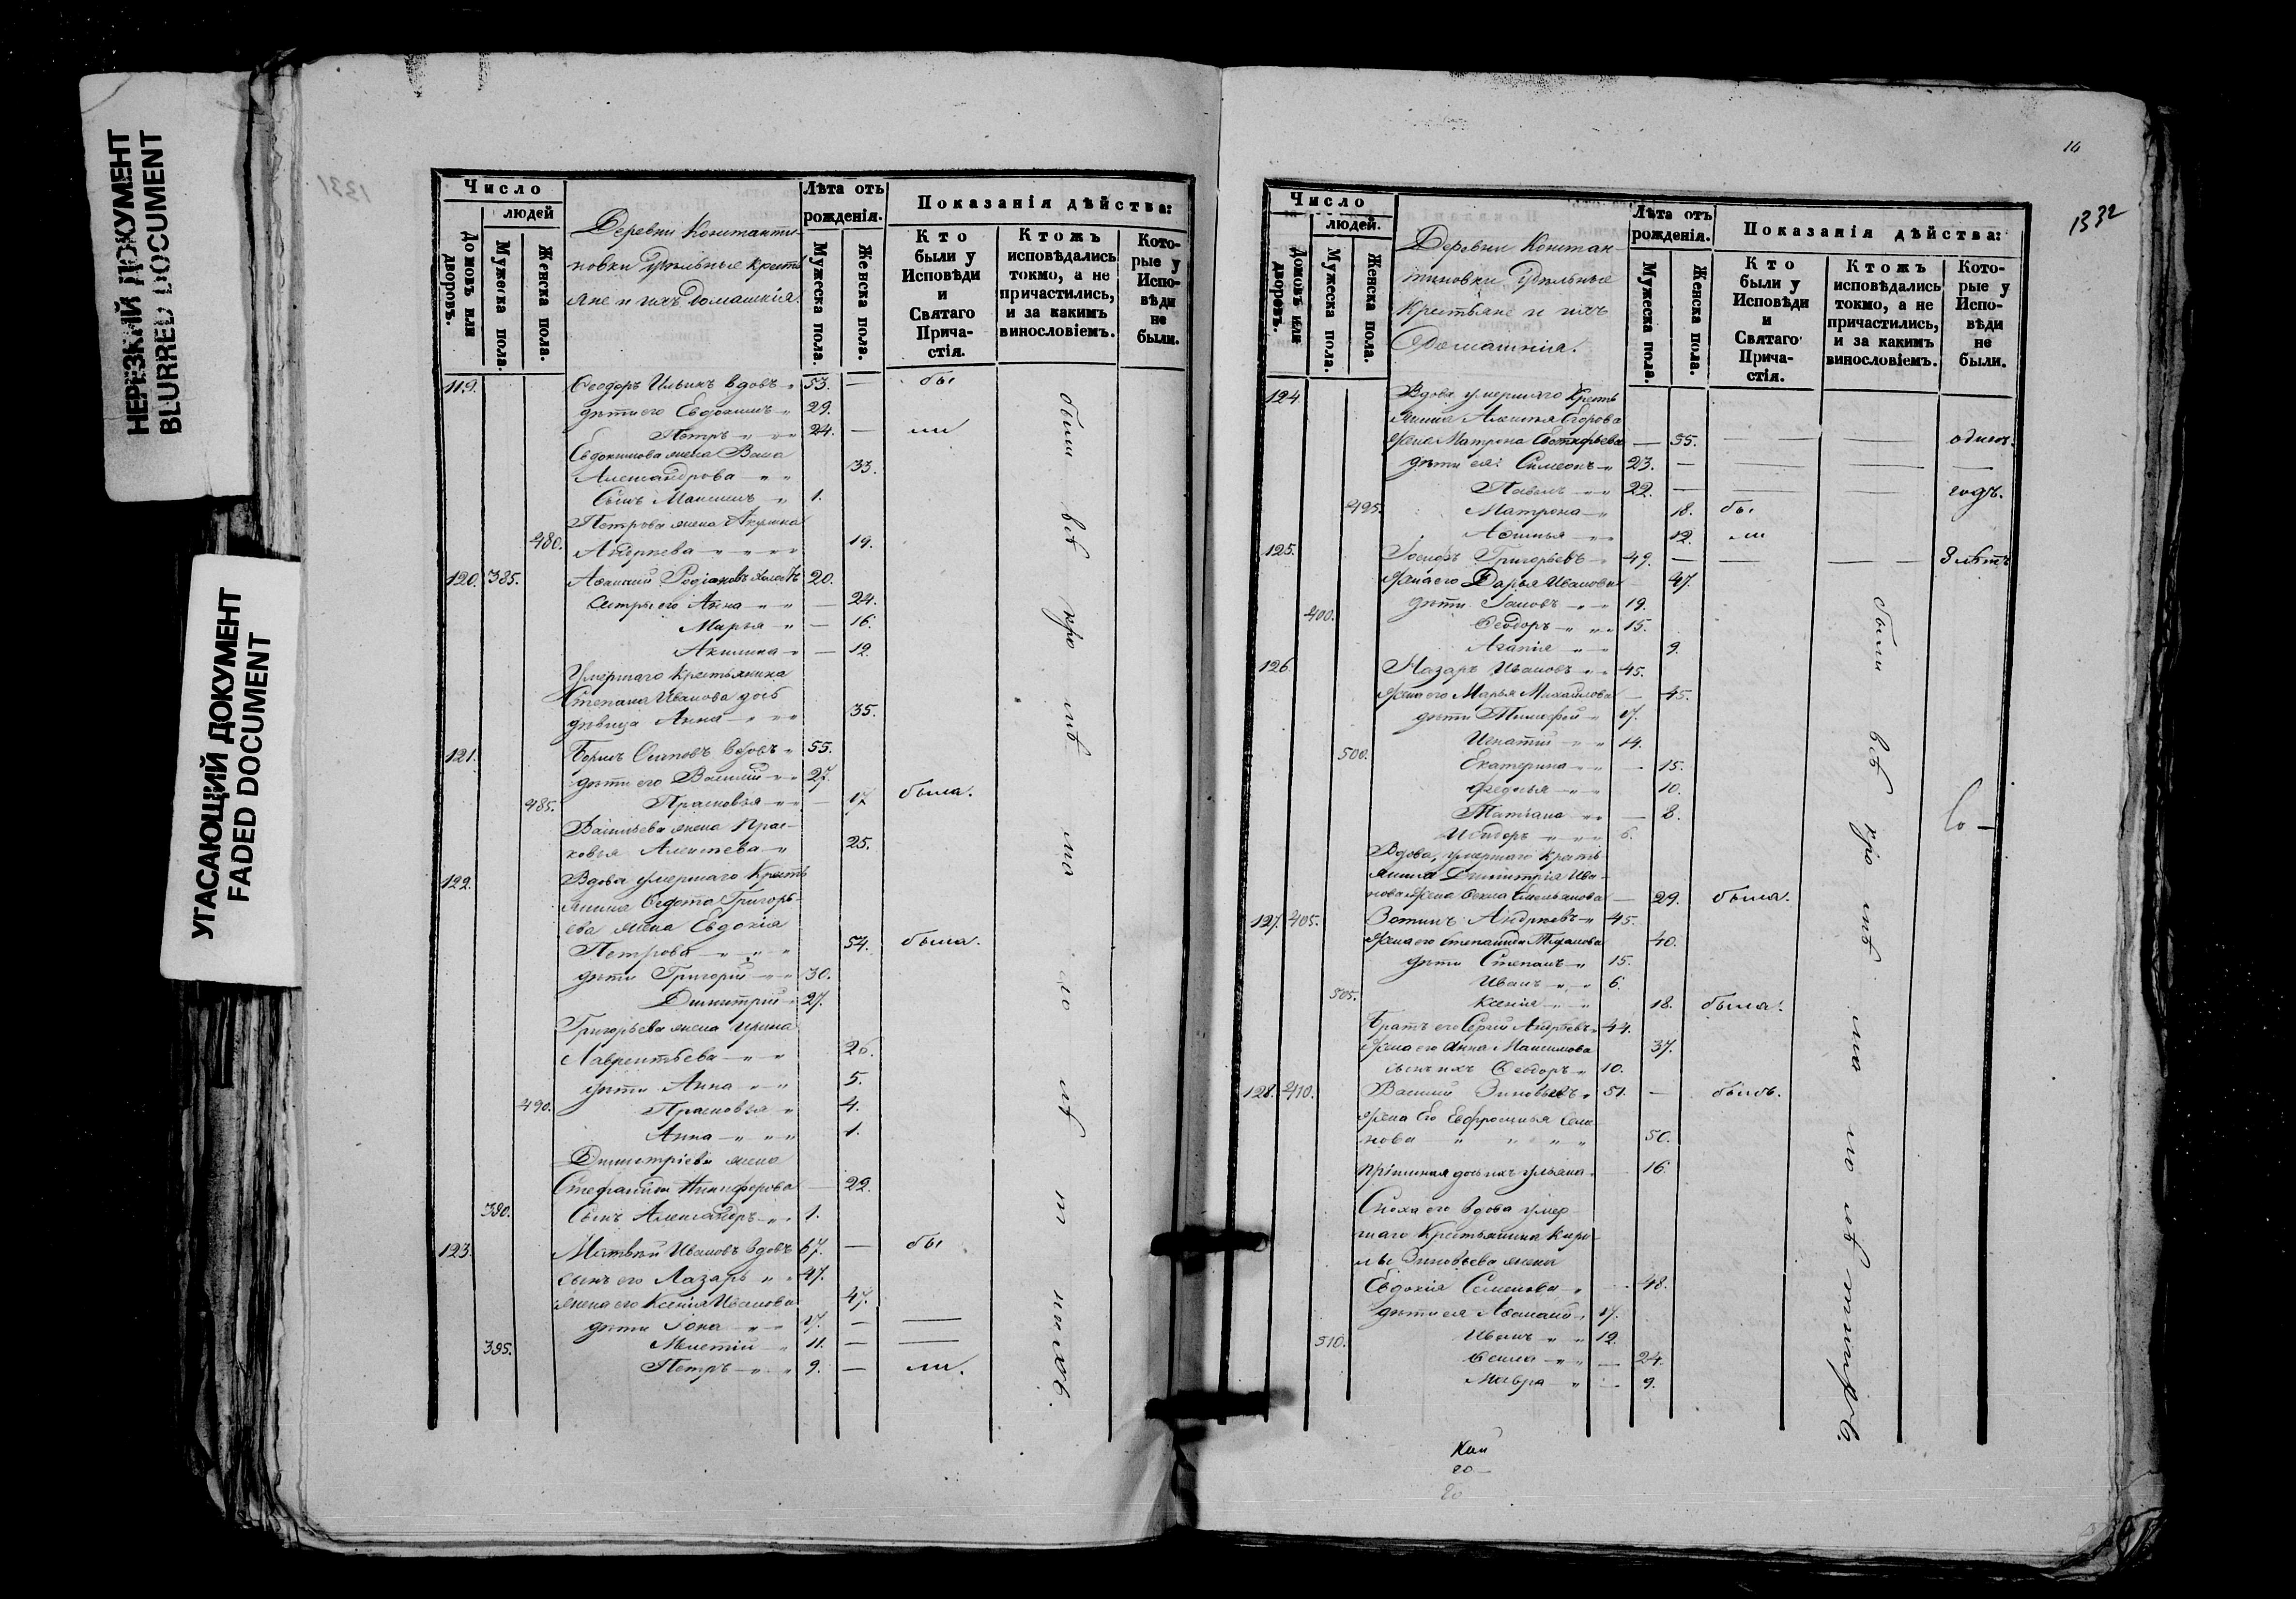 НЕРЕЗКИЙ ДОКУМЕНТ
BLURRED DOCUMENT
УГАСАЮЩИЙ ДОКУМЕНТ
FADED DOCUMENT
1331
Число
людей
Домовъ или дворовъ.
Мужеска пола.
Женска пола.
Деревни Константи-
новки Удѣльные кресть
яне и ихъ домашнія.
Лѣта отъ
рожденія.
Мужеска пола.
Женска пола.
Показанія дѣйства:
Кто
были у
Исповѣди
и
Святаго
Прича-
стія.
Ктожъ
исповѣдались
токмо, а не
причастились,
и за какимъ
винословіемъ.
Кото-
рые у
Испо-
вѣди
не
были.
119. Ѳеодоръ Ильинъ вдовъ 53. — бы
дѣти его Евдокимъ 29.
Петръ 24. — ли
Евдокимова жена Васса
Александрова 33.
Сынъ Максимъ 1.
Петрова жена Акулина
480. Андреева 19.
120. 385. Аѳанасій Родіоновъ холостъ 20.
Сестры его Анна — 24.
Марья — 16.
Акилина — 12.
Умершаго крестьянина
Степана Иванова дочь
дѣвица Анна 35.
121. Борисъ Осиповъ вдовъ 55.
дѣти его Василій 27.
485. Прасковья — 17 была.
Васильева жена Прас-
ковья Алексѣева 25.
122. Вдова умершаго Кресть
янина Ѳедота Григорь-
ева жена Евдокія
Петрова 54. была.
дѣти Григорій 30.
Димитрій 27.
Григорьева жена Ирина
Лаврентьева 26.
дѣти Анна 5.
490. Прасковья 4.
Анна 1.
Димитріева жена
Стефанида Никифорова — 22.
390. Сынъ Александръ 1.
123. Матвѣй Ивановъ вдовъ 67. — бы
сынъ его Лазарь 47.
жена его Ксенія Иванова 47.
дѣти Іона 17. —
Мелетій 11. —
395. Петръ 9. — ли.
были всѣ
14
1332
Число
людей.
Домовъ или дворовъ.
Мужеска пола.
Женска пола.
Деревни Констан-
тиновки Удѣльные
Крестьяне и ихъ
Домашнія.
Лѣта отъ
рожденія.
Мужеска пола.
Женска пола.
Показанія дѣйства:
Кто
были у
Исповѣди
и
Святаго
Прича-
стія.
Ктожъ
исповѣдались
токмо, а не
причастились,
и за какимъ
винословіемъ.
Кото-
рые у
Испо-
вѣди
не
были.
124. Вдова умершаго Кресть
янина Алексѣя Егорова
жена Матрона — 55. — одинъ
дѣти ея: Симеонъ 23. —
Павелъ 22. — годъ.
495. Матрона 18. бы
Аѳимья 12. ли
125. Іосифъ Григорьевъ 49. — 8 лѣтъ
Жена его Дарья Иванова 47.
дѣти Іаковъ 19.
400. Ѳеодоръ 15.
Агапія 9.
126. Назаръ Ивановъ 45.
Жена его Марья Михайлова — 45.
дѣти Тимофей 17.
Игнатій 14.
500. Екатерина — 15.
Ѳедосья 10.
Татіана — 8.
Исидоръ 6.
Вдова, умершаго кресть
янина Димитрія Ива-
нова жена Ѳекла Емельянова — 29. была.
127. 405. Зотикъ Андреевъ 45.
Жена его Степанида 40.
дѣти Степанъ 15.
Иванъ 6.
505. Ксенія 18. была.
Братъ его Сергій Андреевъ 44.
Жена его Анна Максимова 37.
сынъ ихъ Ѳеодоръ 10.
128. 410. Василій Зиновьевъ 51. — былъ.
Жена Его Евфросинья Семе
нова 50.
дочь ихъ Ульяна — 16.
Сноха его вдова умер
шаго Крестьянина Кири-
лы Зиновьева жена
Евдокія Семенова — 48.
дѣти ея Аѳанасій 17.
510. Иванъ 12.
Ѳекла — 24.
Мавра — 9.
были всѣ